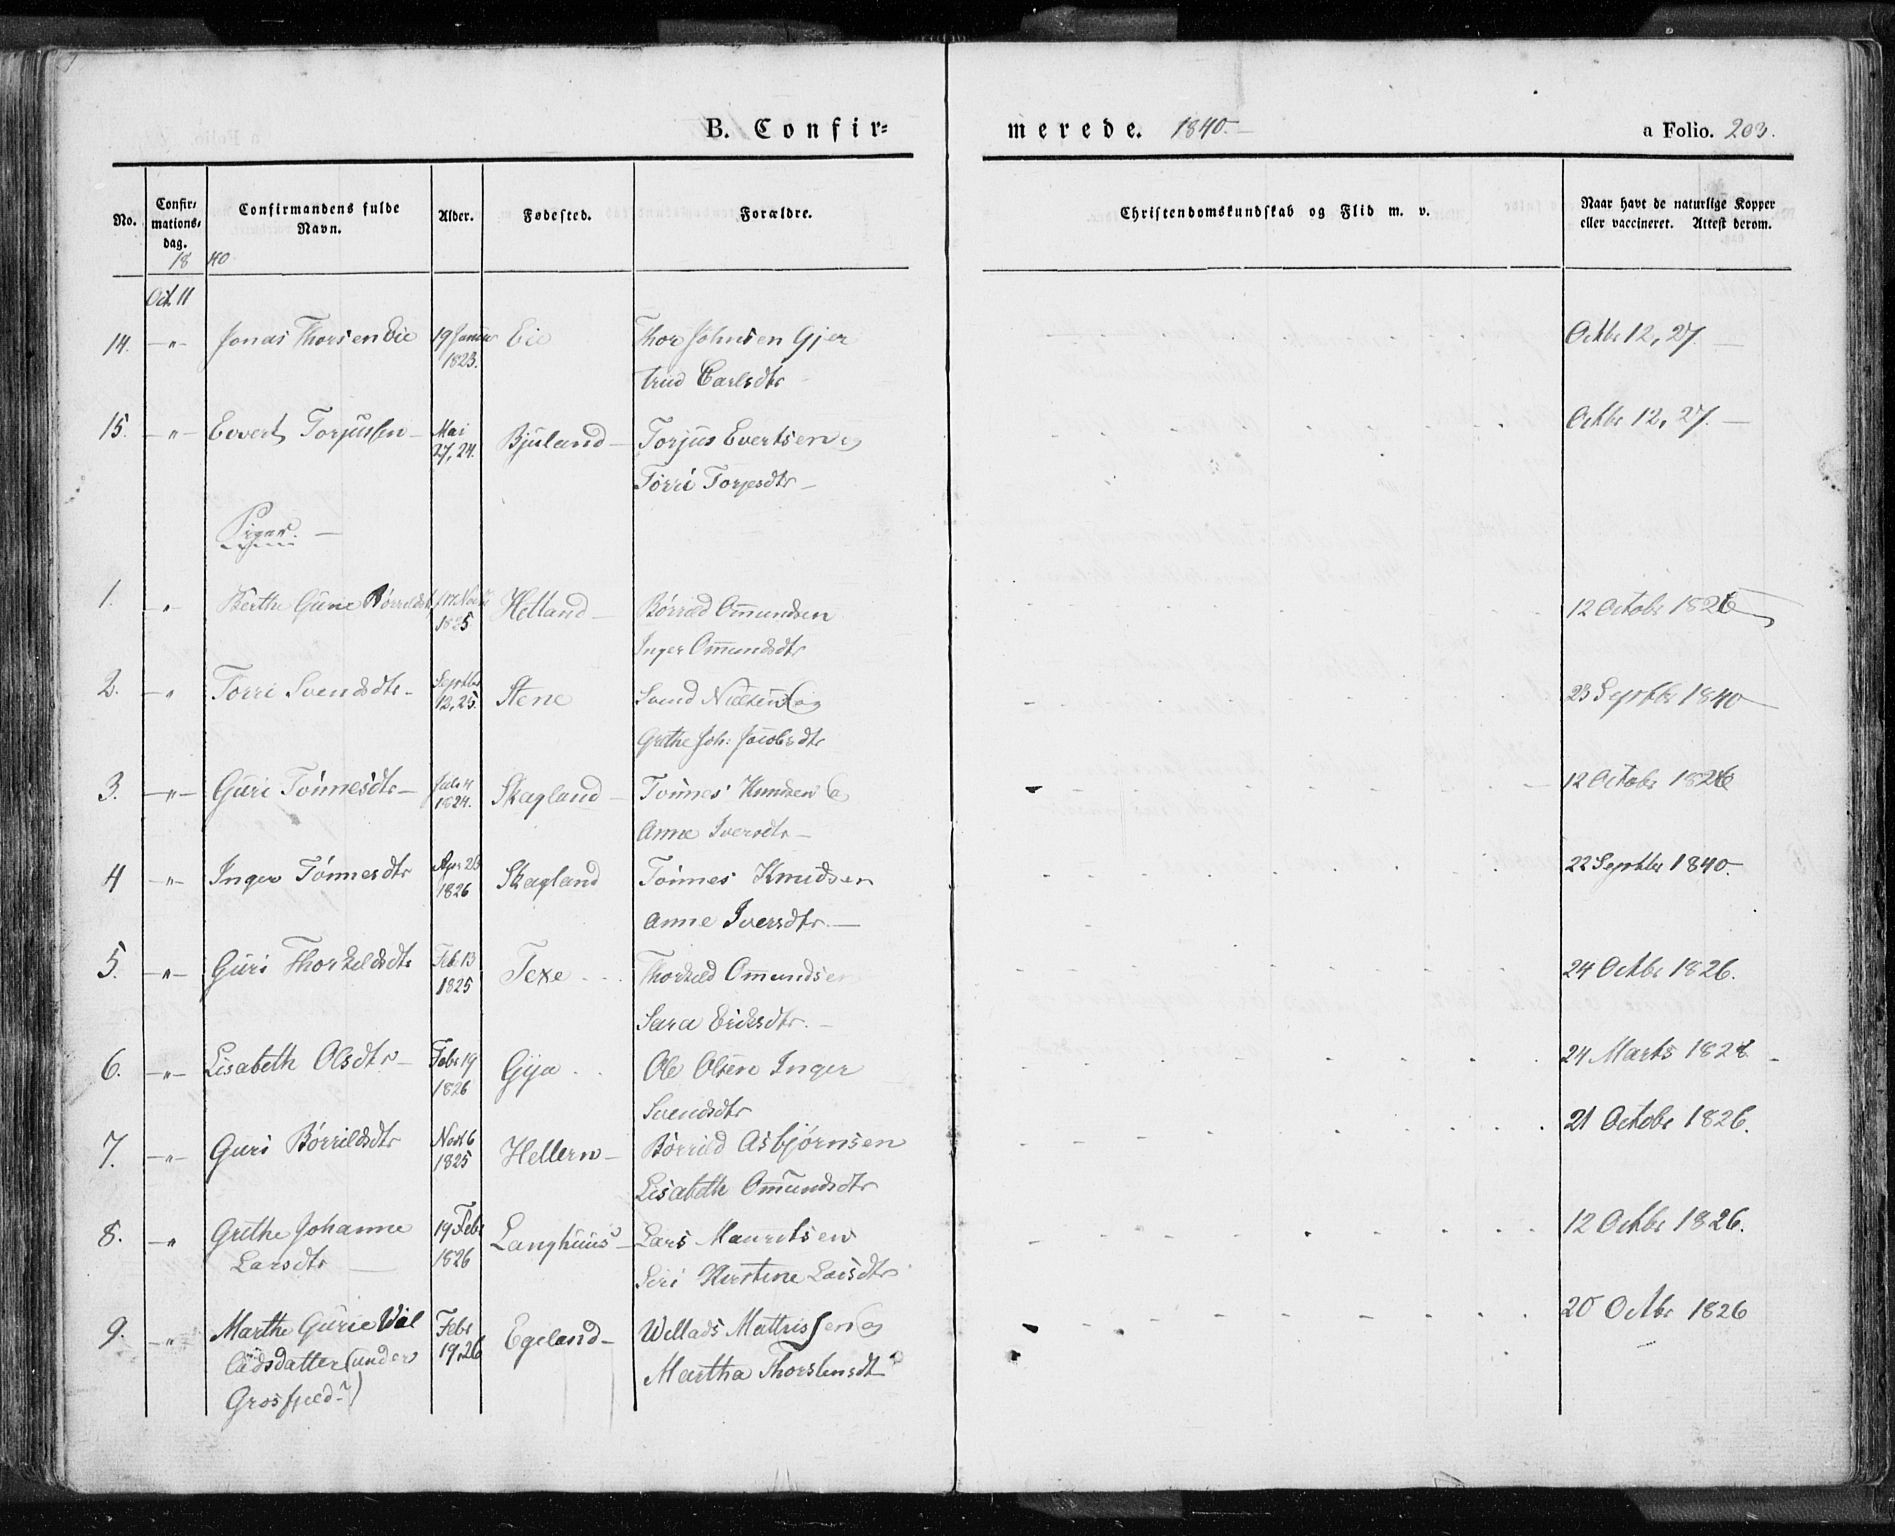 B. Confir=
merede. 1840.
a Folio. 203.
No.
Confir=
mations=
dag.
Confirmandens fulde
Navn.
Alder.
Fødested.
Forældre.
Christendomskundskab og Flid m. v.
Naar havt de naturlige Kopper
eller vaccineret. Attest derom.
18 40
Oct. 11
14. — " — Jonas Thorsen Eie 19 Januar Eie Thor Johnsen Gjer Octbr 12, 27. —
1823. trud Carlsdtr
15. — " — Evert Torjussen — Mai Bjuland — Torjus Evertsen og Octbr 12, 27. —
27, 24. Torri Torjesdtr —
Piger. —
1. " Berthe Gurie 17. Helland — Børrild Omundsen 12 Octobr 1826
1825 Inger Omundsdtr
2. — " Torri Svendsdtr — Septbr Stene Svend Nielsen og 23 Septbr 1840
12, 25. Grethe Joh: Jacobsdtr
3. — " — Guri Tönnesdtr — Skagland — Tönnes Knudsen og 12 Octobr 1826
1824. Anne Iversdtr —
4 — " — Inger Tönnesdtr Apr 26 Skagland Tönnes Knudsen 22 Septbr 1840.
1826 Anne Iversdtr. —
5. — " — Guri Thorkeldsdtr Feb. 13 Texe Thorkild Omundsen 24 Octbr 1826.
1825 Sara Eriksdtr. —
6. — " — Lisabeth Olsdtr — Febr 19 Gya Ole Olsen Inger 24 Marts
1826 Svendsdtr
7. — " — Guri Börrildsdtr Novb 6 Hellern — Börrild Asbjørnsen 21 Octobr 1826.
1825 Lisabeth Omundsdtr
8. — " Grethe Johanne 19 Febr Langhuus — Lars Mauritsen 12 Octbr 1826.
Larsdtr — 1826 Siri Kirstine Larsdtr
9. — " Marthe Gurie Wil Febr Egeland — Willads Mattissen og 20 Octbr 1826
ladsdatter (under 19, 26 Martha Thorstensdtr
Grosfjeld ?)